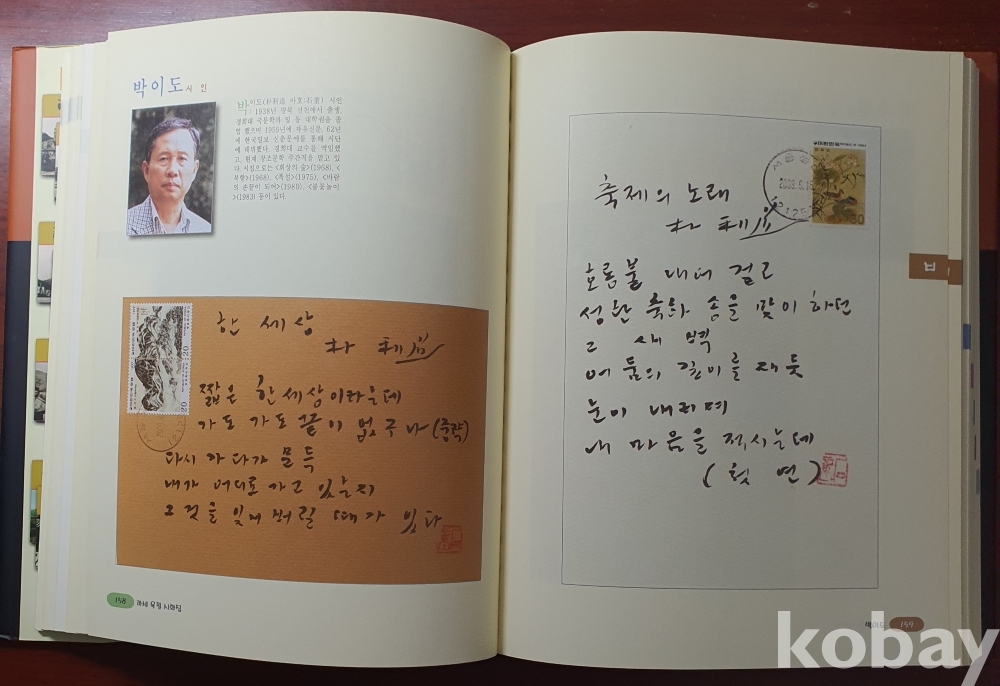 박이도 시인
박이도(朴利道 아호:石蘭) 시인
1938년 평북 선천에서 출생,
경희대 국문학과 및 동 대학원을 졸
업했으며 1959년에 자유신문, 62년
에 한국일보 신춘문예를 통해 시단
에 데뷔했다. 경희대 교수를 역임했
고, 현재 창조문학 주간직을 맡고 있
다. 시집으로는 <회상의 숲>(1968), <
북향>(1968), <폭설>(1975), <바람
의 손끝이 되어>(1980), <불꽃놀이>
(1983) 등이 있다.
20
한 세상
짧은 한 세상이라는데
가도 가도 끝이 없구나 (중략)
다시 가다가 문득
내가 어디로 가고 있는지
그것을 잊어버릴 때가 있다
158 육필 시화집
축제의 노래
2009.5.15
호롱불 내어 걸고
성탄 축하 송을 맞이 하던
그 새벽
어둠의 깊이를 재듯
눈이 내리며
내 마음을 적시는데
(첫 연)
ㅂ
박이도 159
kobay